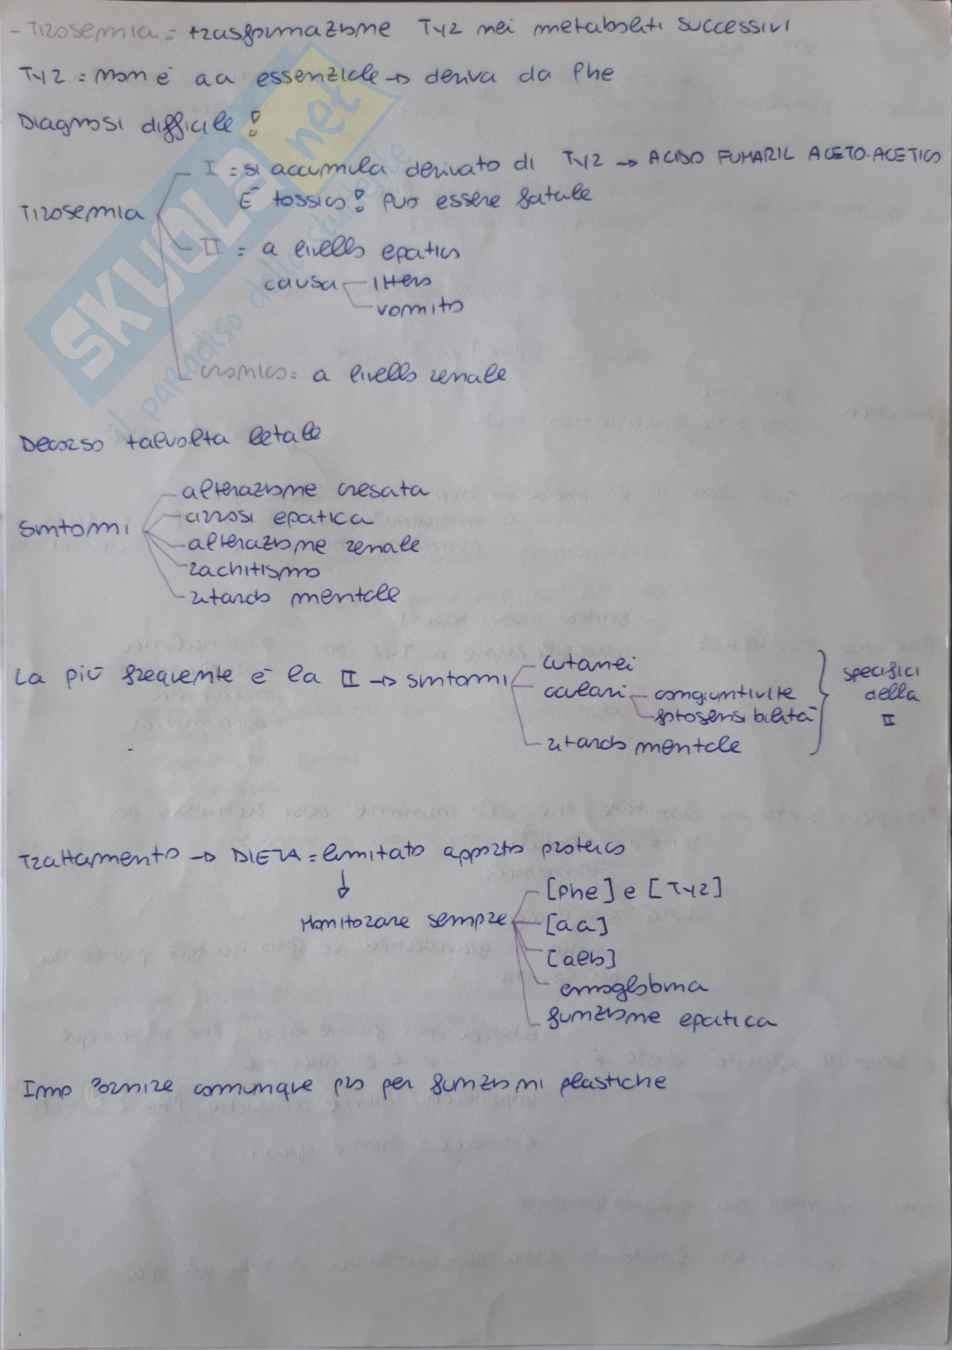 - Tirosemia = trasformazione Tyr nei metaboliti successivi
Tyr = non è aa essenziale → deriva da Phe
Diagnosi difficile!
I = si accumula derivato di Tyr → ACIDO FUMARIL ACETO-ACETICO
È tossico! Può essere fatale
Tirosemia
II = a livello epatico
causa
ittero
vomito
cronica = a livello renale
Decorso talvolta letale
alterazione crescita
cirrosi epatica
Sintomi
alterazione renale
rachitismo
ritardo mentale
La più frequente è la II → sintomi
cutanei
oculari
congiuntivite
fotosensibilità
ritardo mentale
specifici
della
II
Trattamento → DIETA = limitato apporto proteico
↓
Monitorare sempre
[Phe] e [Tyr]
[aa]
[alb]
emoglobina
funzione epatica
Imp fornire comunque pro per funzioni plastiche
SKUOLA.net
il paradiso dello studente